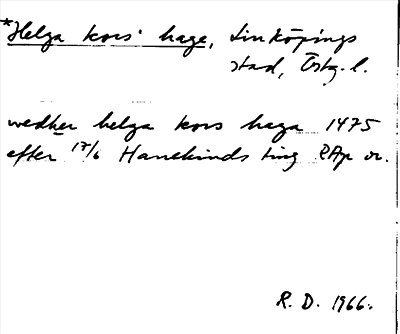 *Helga kors hage, Linköpings
stad, Östg. l.
wedher helga kors haga 1475
efter 17/6 Hanekinds ting RAp or.
R. D. 1966.